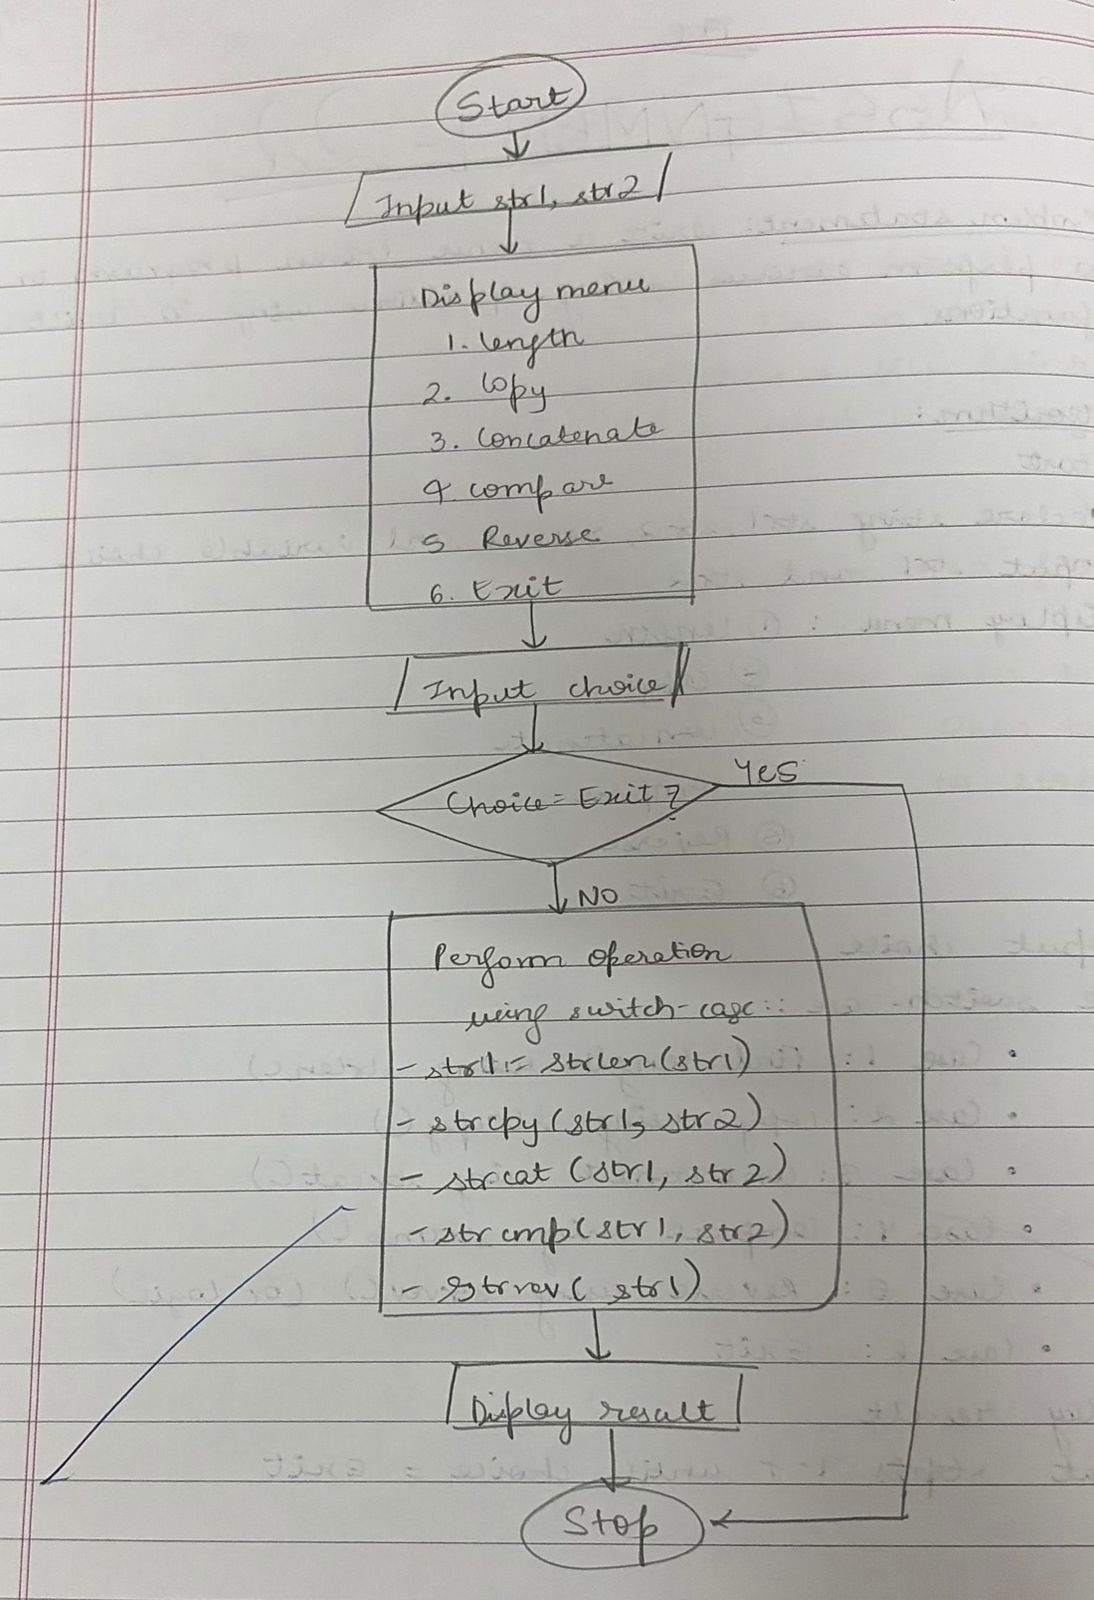 Start
Input str1, str2
Display menu
1. length
2. Copy
3. Concatenate
4 compare
5 Reverse
6. Exit
Input choice
Choice = Exit ?
Yes
NO
Perform operation
using switch-case::
- strlen(str1)
- strcpy (str1, str2)
- strcat (str1, str2)
- strcmp(str1, str2)
- strrev( str1)
Display result
Stop